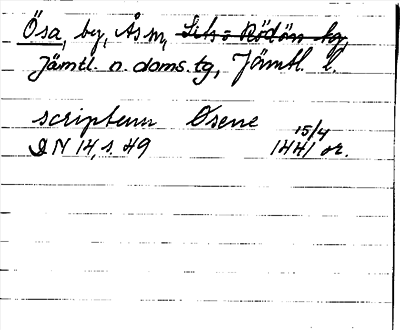 Ösa, by, Ås sn, Sets o Rödön tg,
Jämtl. n. doms. tg, Jämtl. l.
scriptum Øsene
DN 14, s. 49 15/4 1441 or.